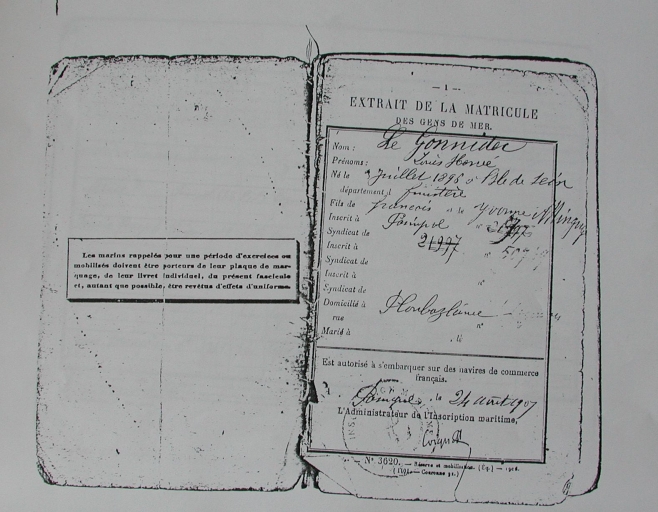 Les marins rappelés pour une période d'exercices ou
mobilisés doivent être porteurs de leur plaque de mar-
quage, de leur livret individuel, du présent fascicule
et, autant que possible, être revêtus d'effets d'uniforme.
— 1 —
EXTRAIT DE LA MATRICULE
DES GENS DE MER.
Nom : Le Gonnidec
Prénoms : Louis Hervé
Né le Juillet 1898 à Ile de Léon
département d finistère
Fils de françois et de Yvonne
Inscrit à Paimpol n°
Syndicat de 21997
Inscrit à n°
Syndicat de
Inscrit à n°
Syndicat de
Domicilié à Ploubazlanec
rue n°
Marié à , le
Est autorisé à s'embarquer sur des navires de commerce
français.
Paimpol, le 24 août 1907
L'Administrateur de l'Inscription maritime,
N° 3620. — Réserve et mobilisation.